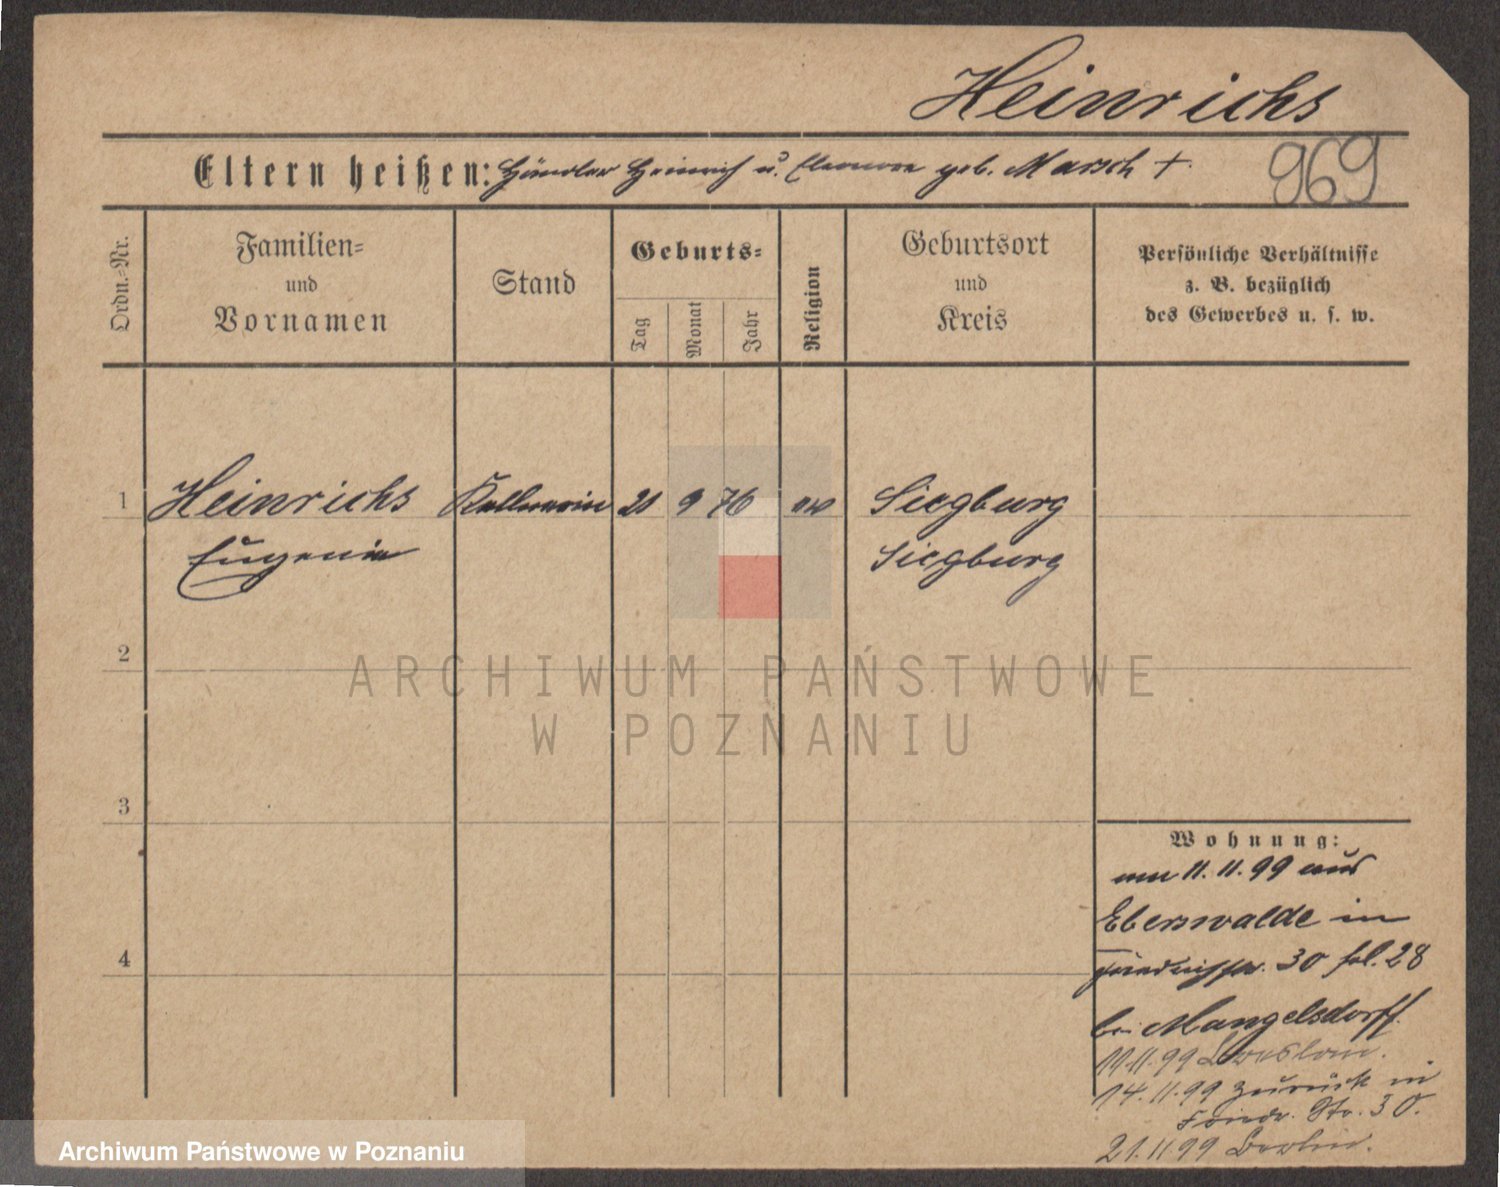 Heinrichs
Eltern heißen: Händler Heinrich u. Eleonore geb. Marsch +.
969
Ordn.-Nr.
Familien-
und
Vornamen
Stand
Geburts-
Tag
Monat
Jahr
Religion
Geburtsort
und
Kreis
Persönliche Verhältnisse
z. B. bezüglich
des Gewerbes u. s. w.
1
Heinrichs
Eugenie
Kellnerin
21
9
76
Siegburg
Siegburg
2
3
4
ARCHIWUM PAŃSTWOWE
W POZNANIU
Wohnung:
am 11. 11. 99 aus
Eberswalde in
30 fol. 28
bei Mangelsdorff.
11.11.99 Breslau.
14.11.99 zurück in
Friedr. Str. 30.
21.11.99 Berlin.
Archiwum Państwowe w Poznaniu